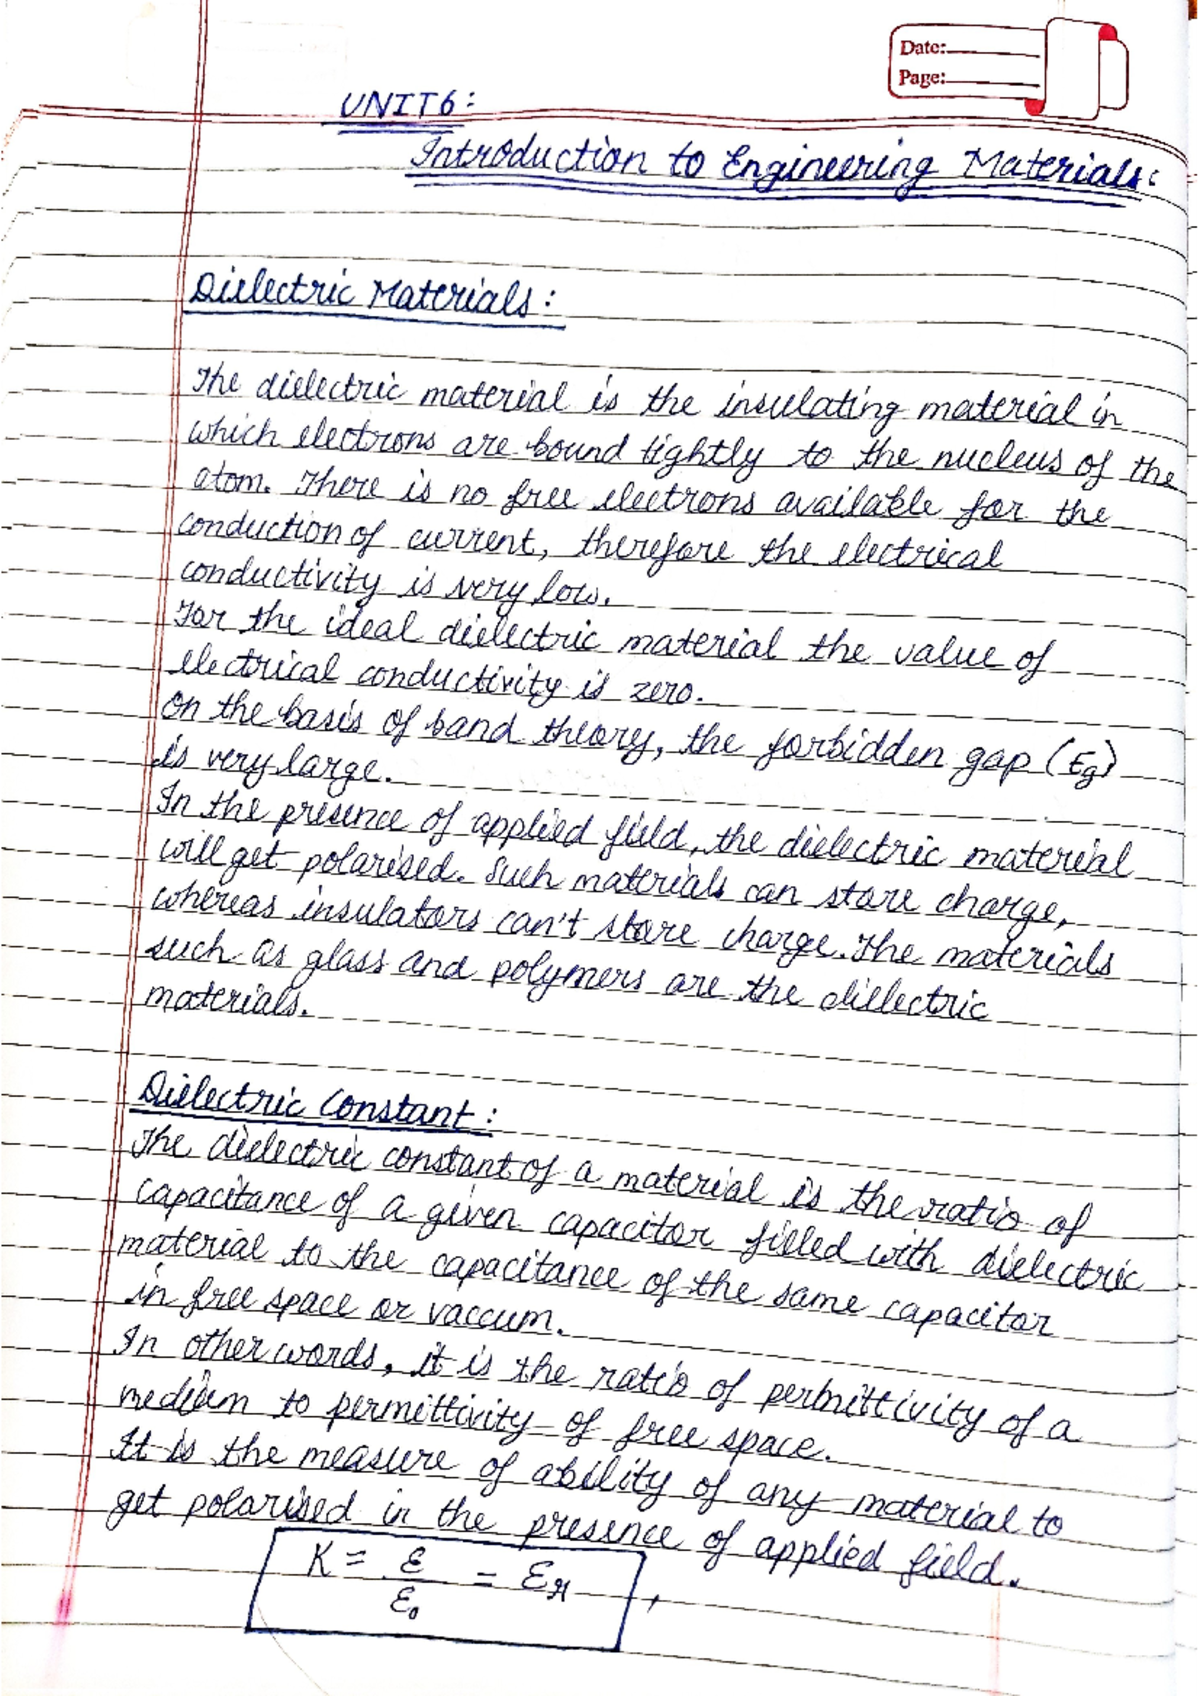 Date:
Page:
UNIT6:
Introduction to Engineering Materials:
Dielectric Materials:
The dielectric material is the insulating material in
which electrons are bound tightly to the nucleus of the
atom. There is no free electrons available for the
conduction of current, therefore the electrical
conductivity is very low.
For the ideal dielectric material the value of
electrical conductivity is zero.
On the basis of band theory, the forbidden gap (Eg)
is very large.
In the presence of applied field, the dielectric material
will get polarised. Such materials can store charge,
whereas insulators can't store charge. The materials
such as glass and polymers are the dielectric
materials.
Dielectric Constant:
The dielectric constant of a material is the ratio of
capacitance of a given capacitor filled with dielectric
material to the capacitance of the same capacitor
in free space or vaccum.
In other words, it is the ratio of permittivity of a
medium to permittivity of free space.
It is the measure of ability of any material to
get polarised in the presence of applied field.
K = ε/ε₀ = εr